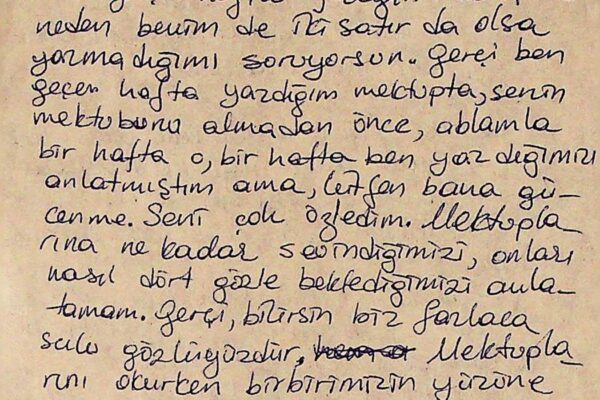 neden benim de iki satır da olsa
yazmadığımı soruyorsun. Gerçi ben
geçen hafta yazdığım mektupta, senin
mektubunu almadan önce, ablamla
bir hafta o, bir hafta ben yazdığımızı
anlatmıştım ama, lütfen bana gü-
cenme. Seni çok özledim. Mektupla
rına ne kadar sevindiğimizi, onları
nasıl dört gözle beklediğimizi anla-
tamam. Gerçi, bilirsin biz fazlaca
sulu gözlüyüzdür. Mektupla
rını okurken birbirimizin yüzüne